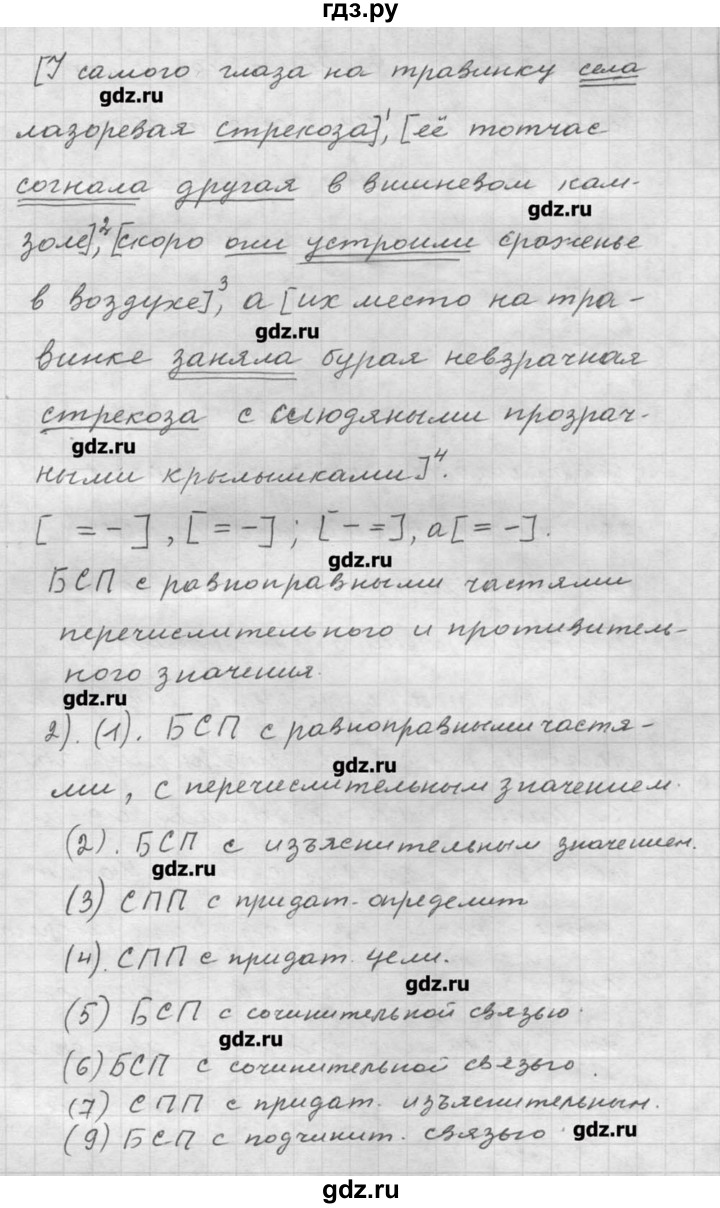 гдз.ру
[У самого глаза на травинку села
gdz.ru
лазоревая стрекоза]¹, [её тотчас
согнала другая в вишневом кам-
gdz.ru
золе]², [скоро они устроили сраженье
в воздухе]³, а [их место на тра-
gdz.ru
винке заняла бурая невзрачная
стрекоза с слюдяными прозрач-
gdz.ru
ными крылышками]⁴.
[ = – ] , [ = – ] ; [ – = ], а [ = – ].
gdz.ru
БСП с равноправными частями
перечислительного и противитель-
ного значения.
gdz.ru
2). (1). БСП с равноправными частя-
gdz.ru
ми, с перечислительным значением.
(2). БСП с изъяснительным значением.
gdz.ru
(3) СПП с придат. определит
(4). СПП с придат. цели.
gdz.ru
(5) БСП с сочинительной связью.
gdz.ru
(6) БСП с сочинительной связью.
(7) СПП с придат. изъяснительным.
(9) БСП с подчинит. связью.
gdz.ru
gdz.ru